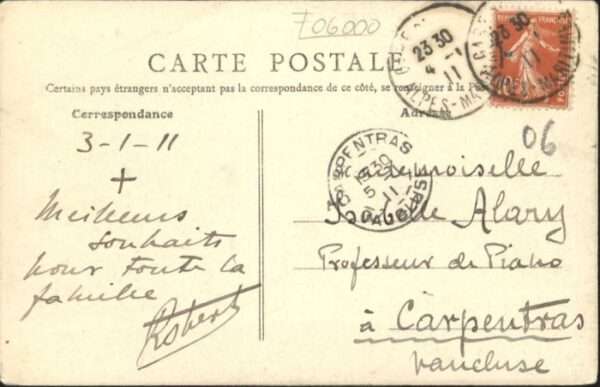 706000
CARTE POSTALE
Certains pays étrangers n'acceptent pas la correspondance de ce côté, se renseigner à la Poste
Correspondance
Adresse
3-1-11
+
Meilleurs
souhaits
pour toute la
famille
Robert
23 30
4 -1
11
ALPES-MARITIMES
23 30
11
06
CARPENTRAS
19 30
5 -1
11
VAUCLUSE
Mademoiselle
Alary
Professeur de Piano
à Carpentras
Vaucluse